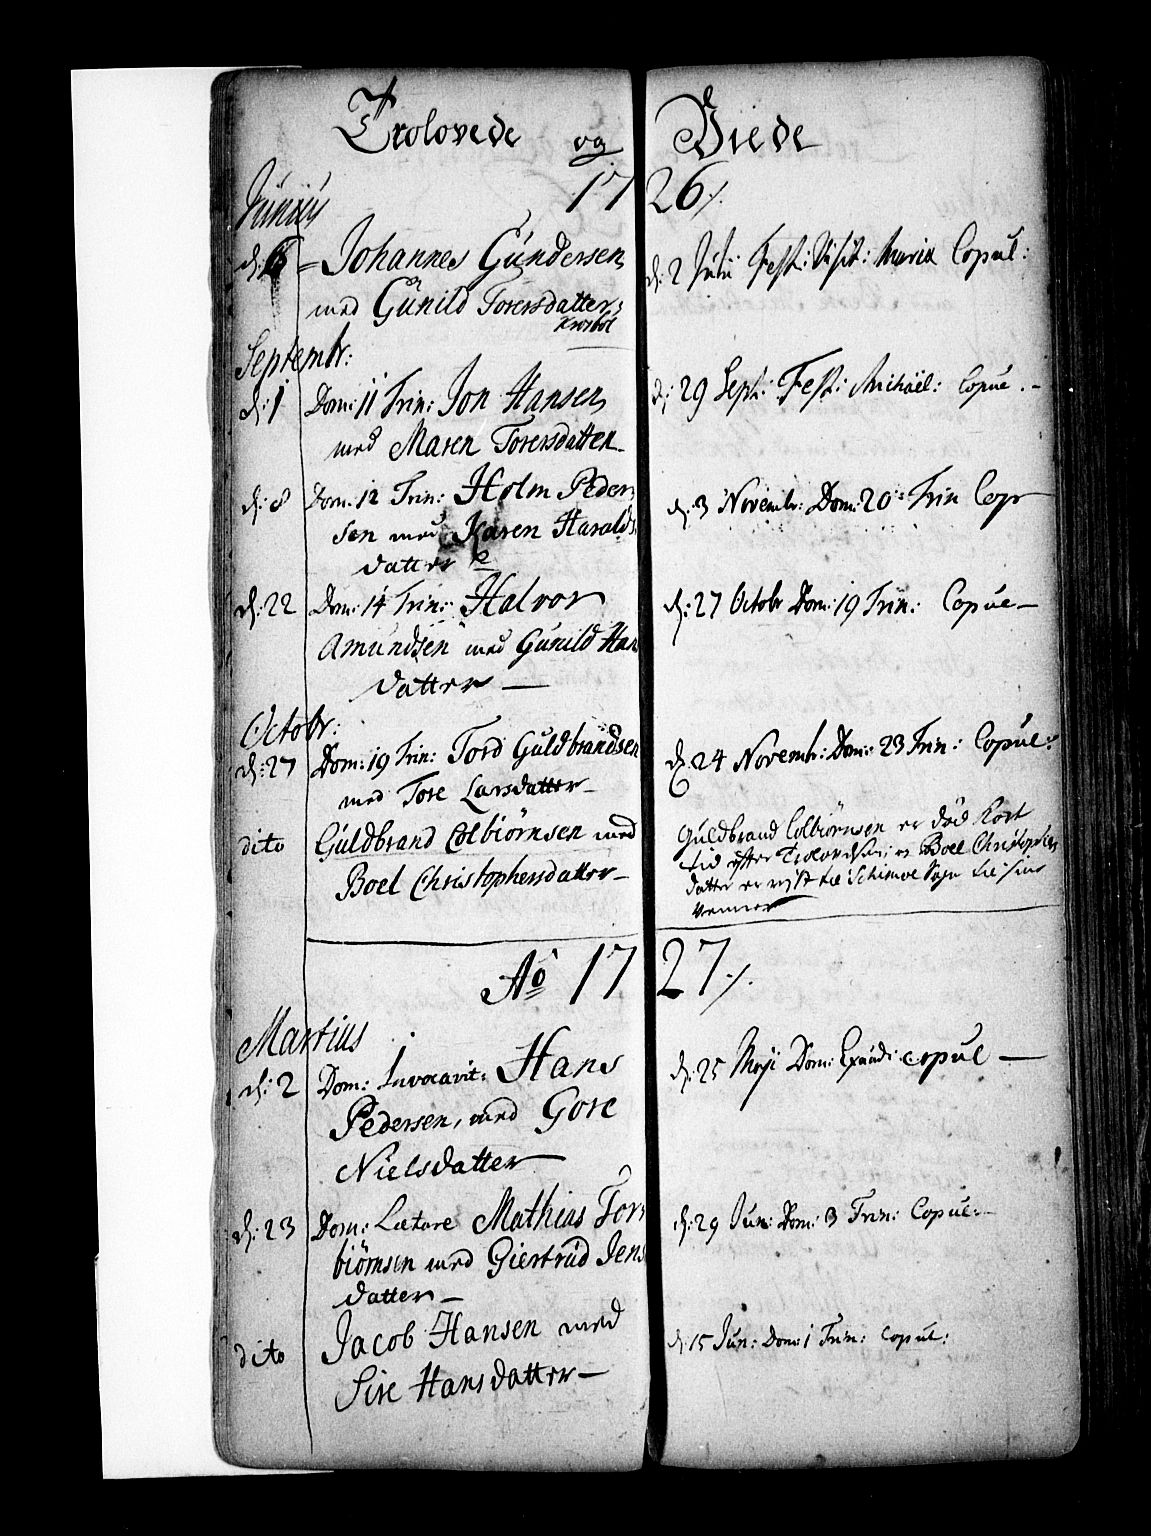 Trolovede og Viede
1726
Junius
d: 6 Johannes Gundersen d: 2 Julii Fest: Visit: Mariæ Copul:
med Gunild Torersdatter
Septembr:
d: 1 Dom: 11 Trin: Jon Hansen d: 29 Sept: Fest: Michaël: Copul.
med Maren Torersdatter
d: 8 Dom: 12 Trin: Holm Peder d: 3 Novembr: Dom: 20 Trin Cop
sen med Karen Harald
datter
d: 22 Dom: 14 Trin: Halvor d: 27 Octobr Dom: 19 Trin: Copul
Amundsen med Gunild Han
datter
Octobr:
d: 27 Dom: 19 Trin: Tord Guldbrandsen d: 24 Novembr: Dom: 23 Trin: Copul:
med Tore Larsdatter
dito Guldbrand Colbiörnsen med
Boel Christophersdatter
Guldbrand Colbiörnsen er död kort
tid efter Trolovelsen; Boel Christophers
datter er reist til Sogn til sine
venner
Ao 1727
Martius
d: 2 Dom: Invocavit: Hans d: 25 Maji Dom: Exaudi: copul
Pedersen, med Gore
Nielsdatter
d: 23 Dom: Lætare Mathias Tor d: 29 Jun: Dom: 3 Trin: Copul
biörnsen med Giertrud Jens
datter
dito Jacob Hansen med d: 15 Jun: Dom: 1 Trin: copul:
Sire Hansdatter